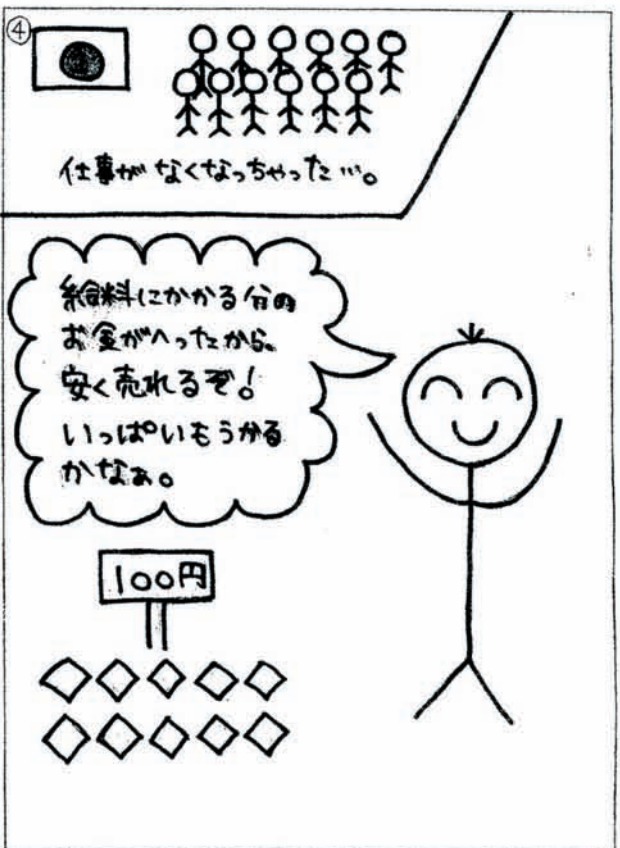 ④
仕事がなくなっちゃった…。
給料にかかる分の
お金がへったから、
安く売れるぞ!
いっぱいもうかる
かなぁ。
100円